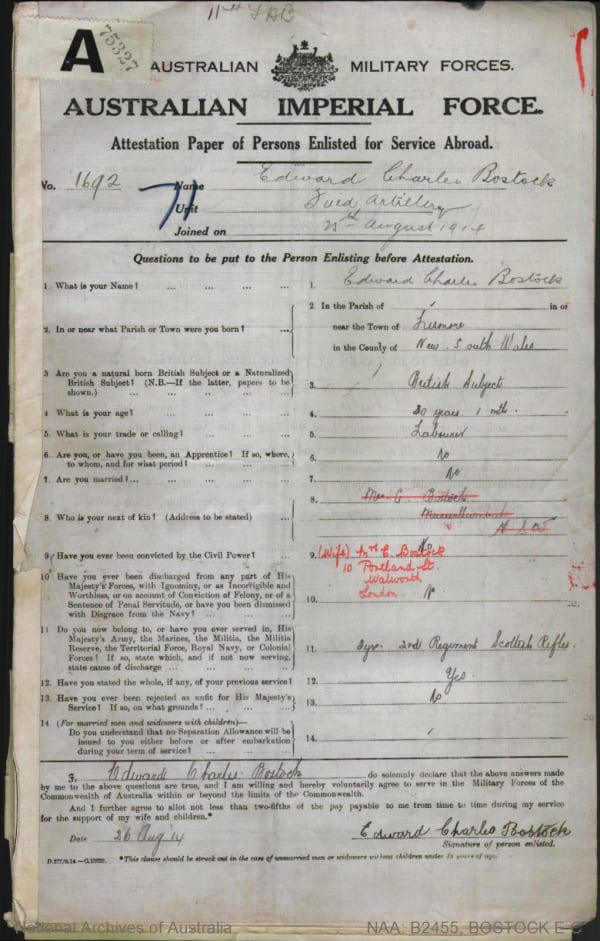 11th FAB
A 75327
AUSTRALIAN MILITARY FORCES.
AUSTRALIAN IMPERIAL FORCE.
Attestation Paper of Persons Enlisted for Service Abroad.
No. 1692 Name Edward Charles Bostock
Unit Field Artillery
Joined on 25th August 1914
Questions to be put to the Person Enlisting before Attestation.
1. What is your Name? ... ... ... ... 1. Edward Charles Bostock
2. In or near what Parish or Town were you born? ... ... 2. In the Parish of in or
near the Town of Lismore
in the County of New South Wales
3 Are you a natural born British Subject or a Naturalized
British Subject? (N.B.—If the latter, papers to be
shown.) ... ... ... ... ... 3. British Subject
4. What is your age? ... ... ... ... 4. 30 years 1 mth.
5. What is your trade or calling? ... ... ... 5. Labourer
6. Are you, or have you been, an Apprentice? If so, where,
to whom, and for what period? ... ... ... 6. No
7. Are you married? ... ... ... ... 7. No
8. Who is your next of kin? (Address to be stated) ... 8. Mrs C. Bostock
Murwillumbah
N S W
9. Have you ever been convicted by the Civil Power? ... 9. No
(Wife) Mrs E. Bostock
10 Portland St.
Walworth
London.
10 Have you ever been discharged from any part of His
Majesty's Forces, with Ignominy, or as Incorrigible and
Worthless, or on account of Conviction of Felony, or of a
Sentence of Penal Servitude, or have you been dismissed
with Disgrace from the Navy? ... ... ... 10. No
11 Do you now belong to, or have you ever served in, His
Majesty's Army, the Marines, the Militia, the Militia
Reserve, the Territorial Force, Royal Navy, or Colonial
Forces? If so, state which, and if not now serving,
state cause of discharge ... ... ... 11. 3yrs. 2nd Regiment Scottish Rifles
12. Have you stated the whole, if any, of your previous service? 12. Yes
13. Have you ever been rejected as unfit for His Majesty's
Service? If so, on what grounds? ... ... ... 13. No
14 (For married men and widowers with children)—
Do you understand that no Separation Allowance will be
issued to you either before or after embarkation
during your term of service? ... ... ... 14.
I, Edward Charles Bostock do solemnly declare that the above answers made
by me to the above questions are true, and I am willing and hereby voluntarily agree to serve in the Military Forces of the
Commonwealth of Australia within or beyond the limits of the Commonwealth.
And I further agree to allot not less than two-fifths of the pay payable to me from time to time during my service
for the support of my wife and children.*
Date 26 Aug 14 Edward Charles Bostock
Signature of person enlisted.
*This clause should be struck out in the case of unmarried men or widowers without children under 18 years of age.
National Archives of Australia NAA: B2455, BOSTOCK E C